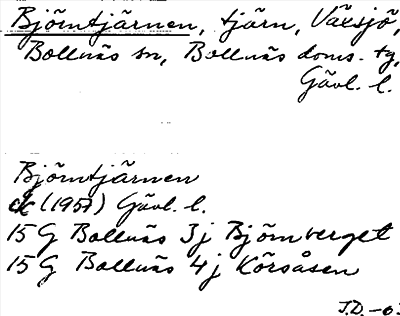 Björntjärnen, tjärn, Växsjö,
Bollnäs sn, Bollnäs doms. tg,
Gävl. l.
Björntjärnen
ek (1957) Gävl. l.
15 G Bollnäs 3j Björnberget
15 G Bollnäs 4j Körsåsen
J.D. -63